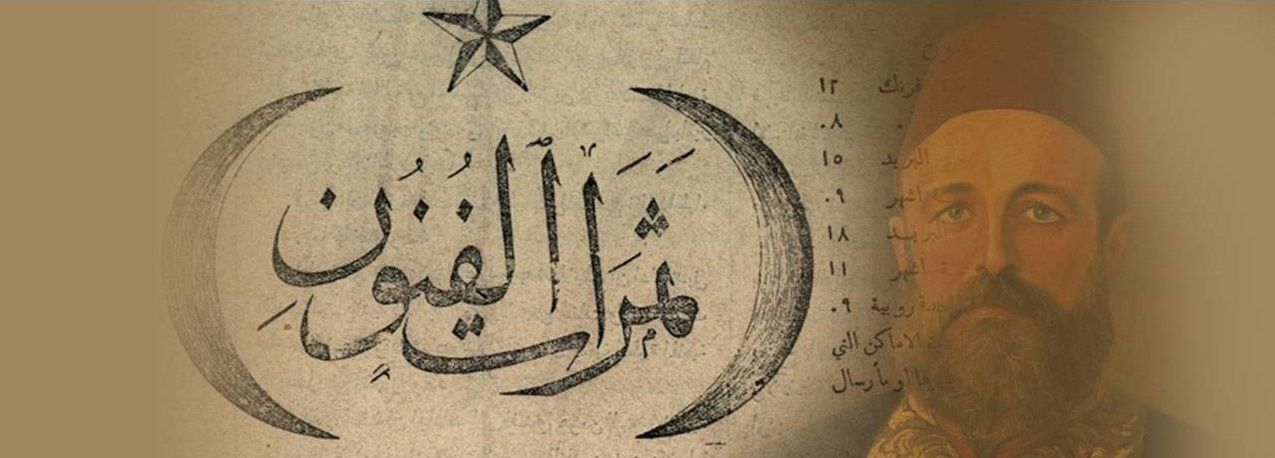 ثَمَرَاتُ الفُنُونِ
فرنك ١٢
٠٨
البريد ١٥
اشهر ٠٩
البريد ١٨
اشهر ١١
روبية ٠٩
الاماكن التي
او بأرسال